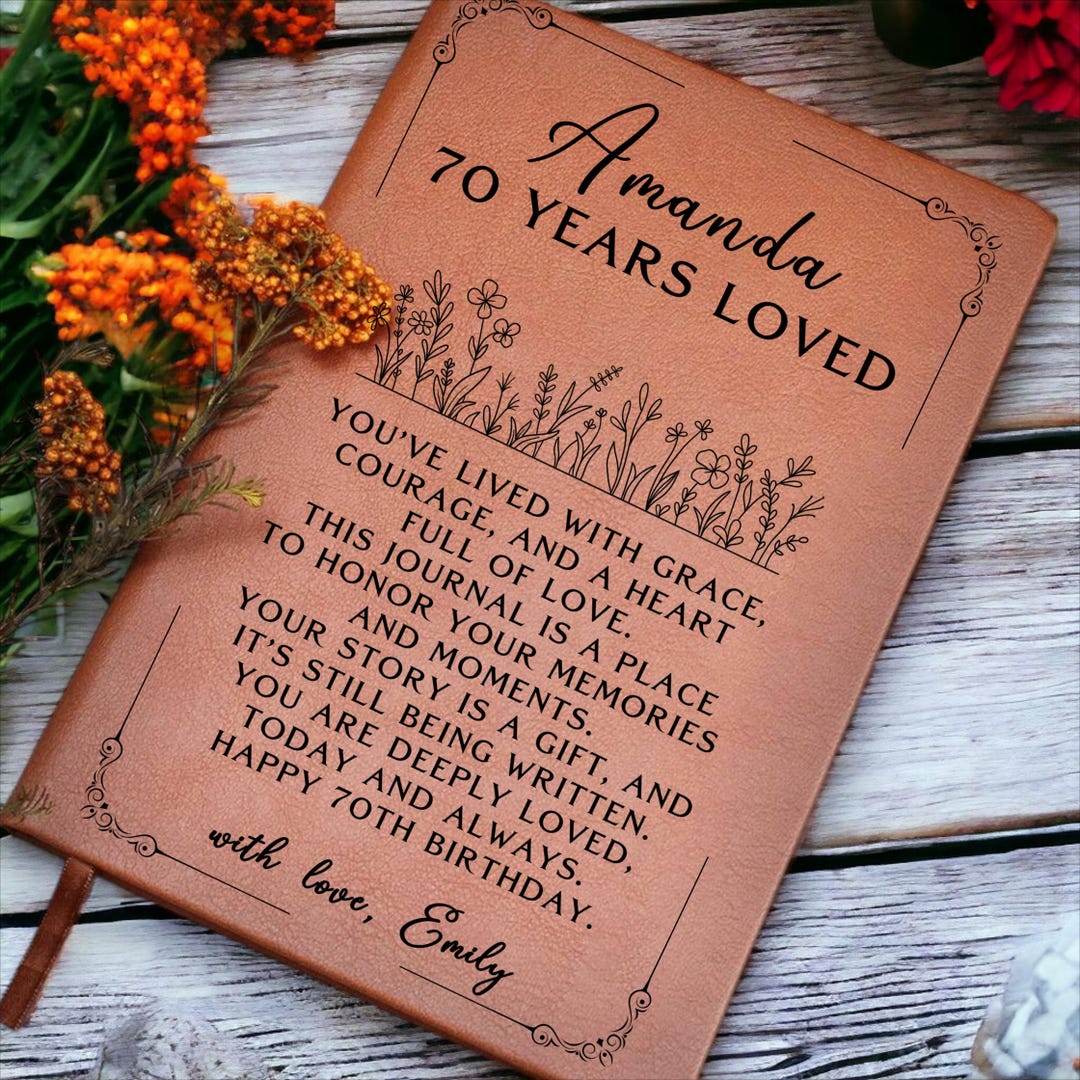 Amanda
70 YEARS LOVED
YOU'VE LIVED WITH GRACE,
COURAGE, AND A HEART
FULL OF LOVE.
THIS JOURNAL IS A PLACE
TO HONOR YOUR MEMORIES
AND MOMENTS.
YOUR STORY IS A GIFT, AND
IT'S STILL BEING WRITTEN.
YOU ARE DEEPLY LOVED,
TODAY AND ALWAYS.
HAPPY 70TH BIRTHDAY.
with love, Emily